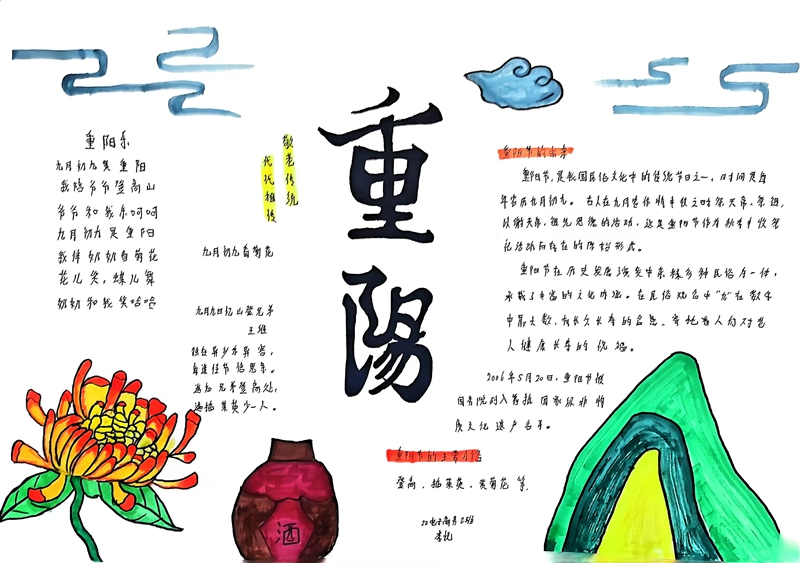 重阳乐
九月初九是重阳
我陪爷爷登高山
爷爷和我乐呵呵
九月初九是重阳
我伴奶奶白菊花
花儿笑，蝶儿舞
奶奶和我笑哈哈
敬老传统
代代相传
九月初九白菊花
九月九日忆山登兄弟
王维
独在异乡为异客，
每逢佳节倍思亲。
遥知兄弟登高处，
遍插茱萸少一人。
重陽
重阳节的由来
重阳节，是我国民俗文化中的传统节日之一，日时间是每
年农历九月初九。古人在九月农作物丰收之时祭天帝、祭祖，
以谢天帝、祖先恩德的活动，这是重阳节作为秋季丰收祭
祀活动而存在的原始形式。
重阳节在历史发展演变中杂糅多种民俗为一体，
承载了丰富的文化内涵。在民俗观念中“九”在数字
中最大数，有长久长寿的含意、寄托着人们对老
人健康长寿的祝福。
2006年5月20日，重阳节被
国务院列入首批国家级非物
质文化遗产名录。
重阳节的主要习俗
登高、插茱萸、赏菊花等。
酒